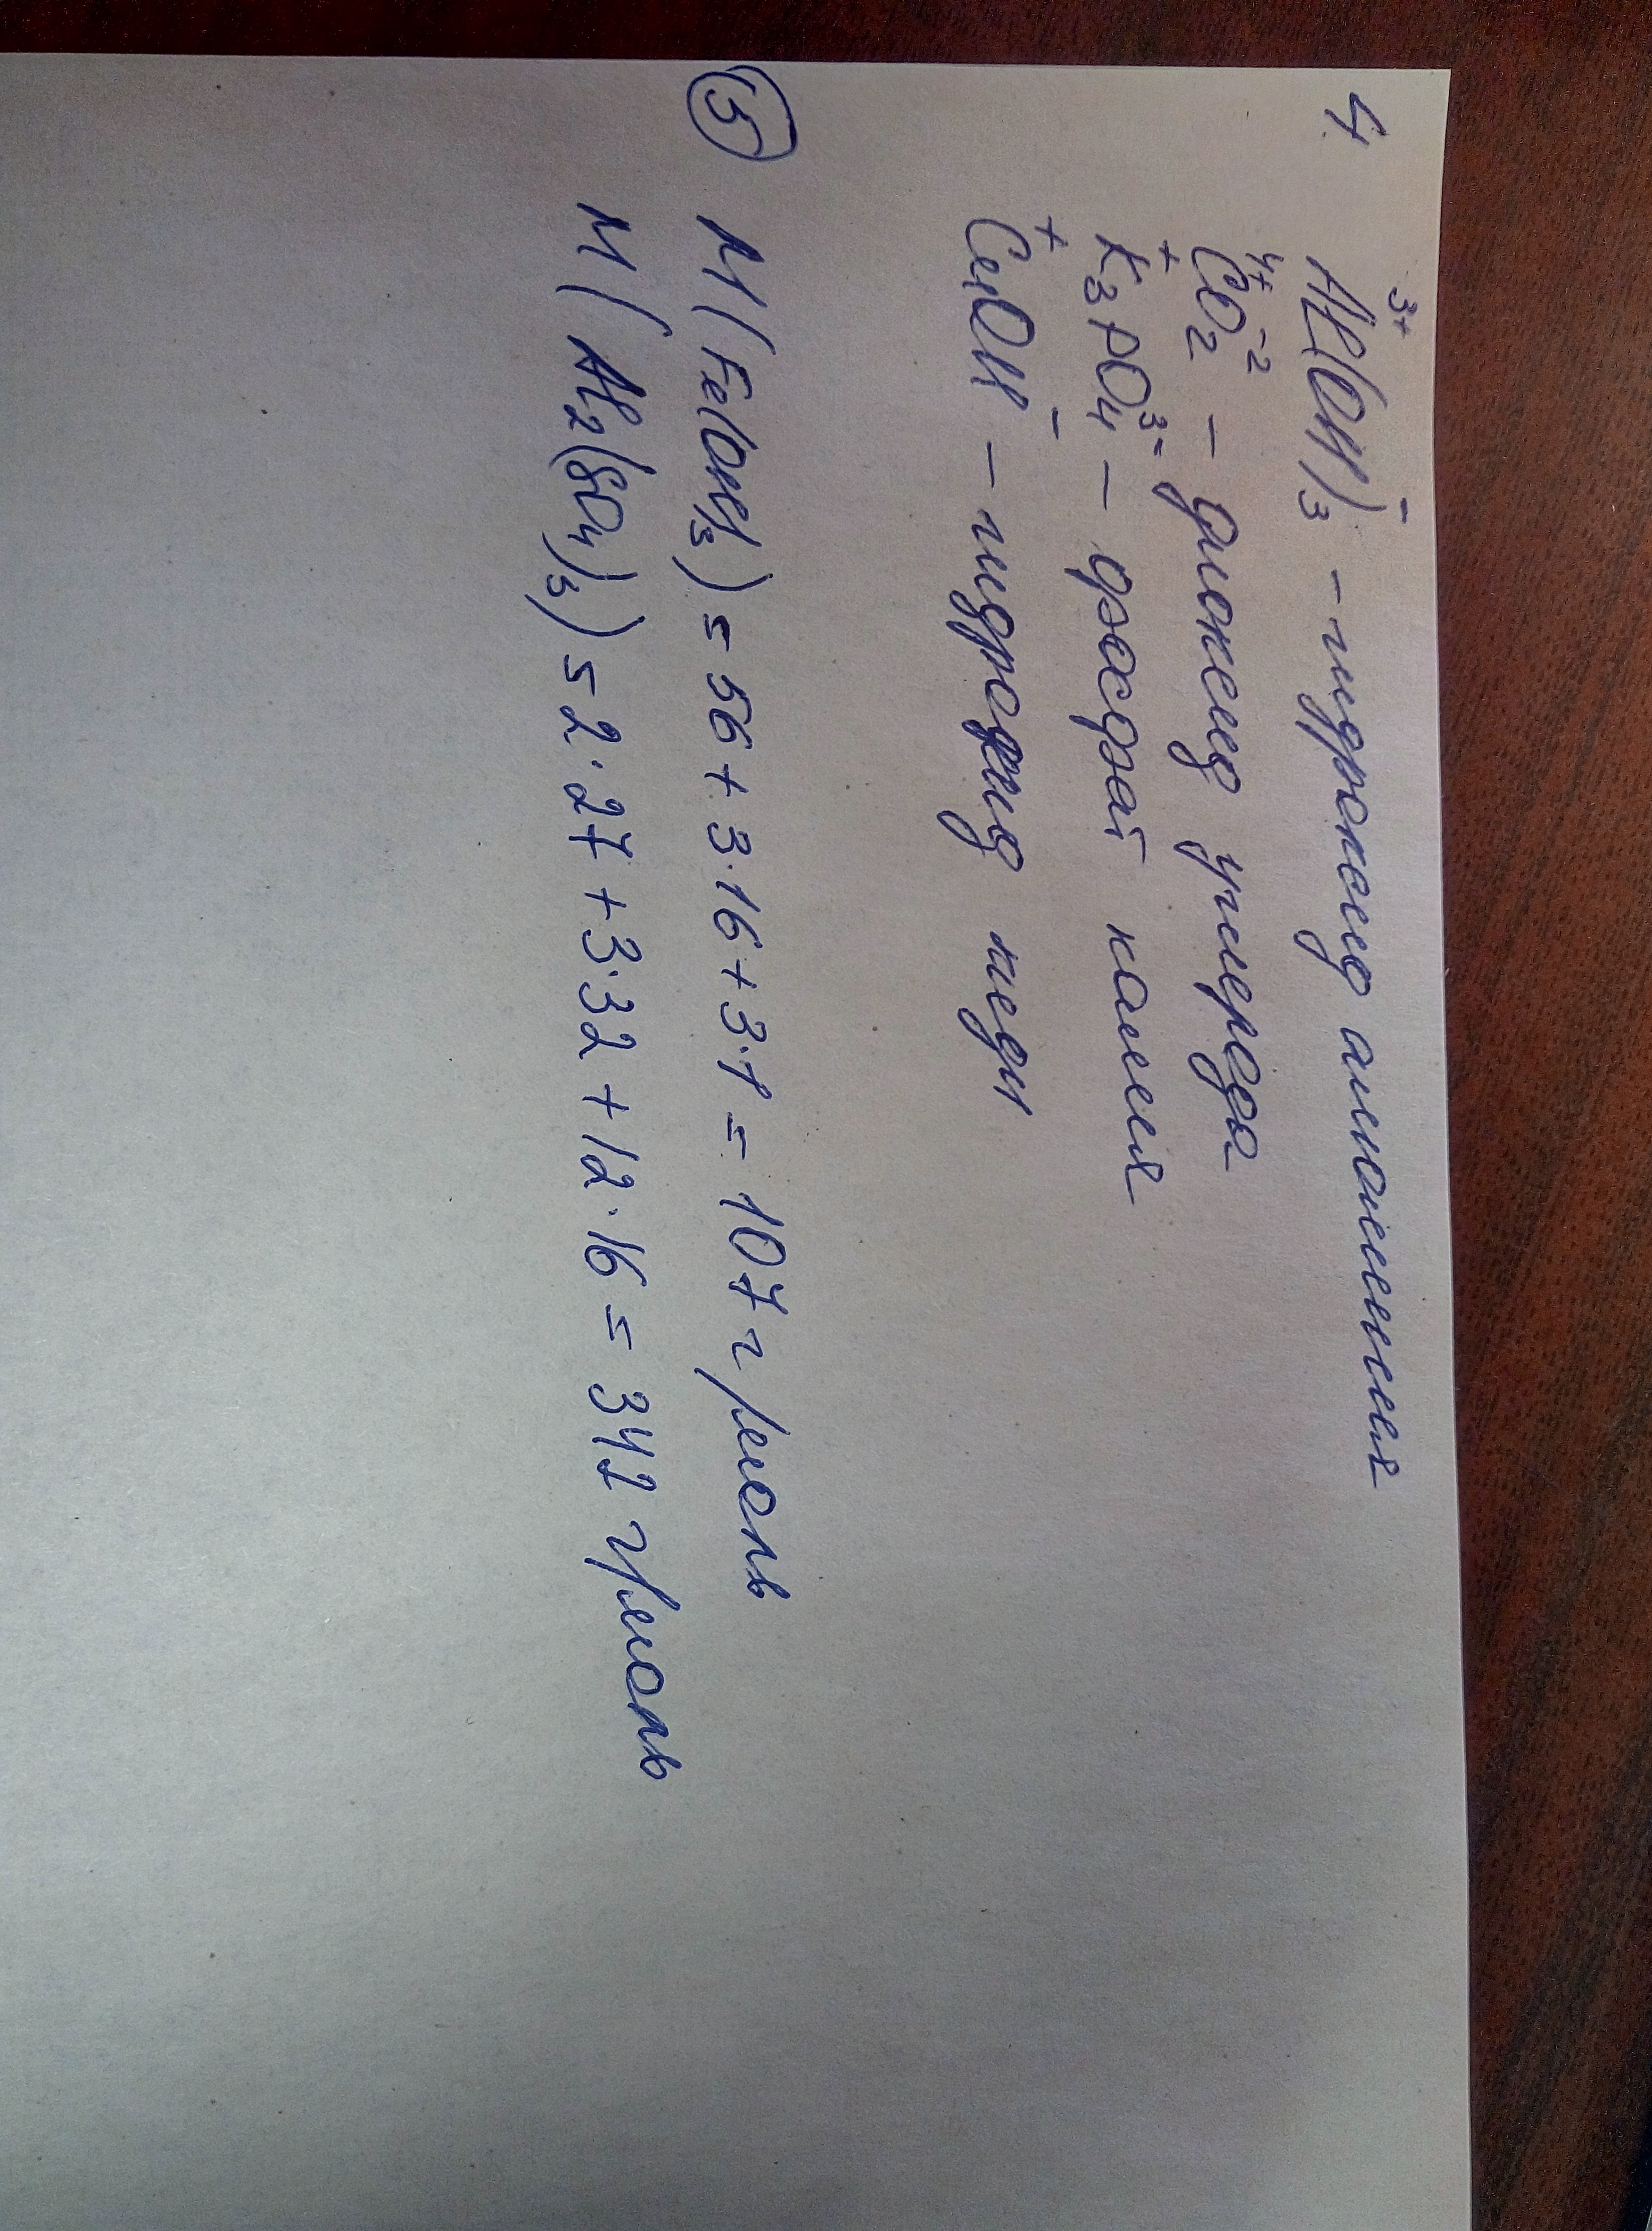 4 Al³⁺(OH)₃⁻ - гидроксид алюминия
C⁴⁺O₂⁻² - диоксид углерода
K₃⁺PO₄³⁻ - фосфат калия
Cu⁺OH⁻ - гидроксид меди
5 M(Fe(OH)₃) = 56 + 3·16 + 3·1 = 107 г/моль
M(Al₂(SO₄)₃) = 2·27 + 3·32 + 12·16 = 342 г/моль